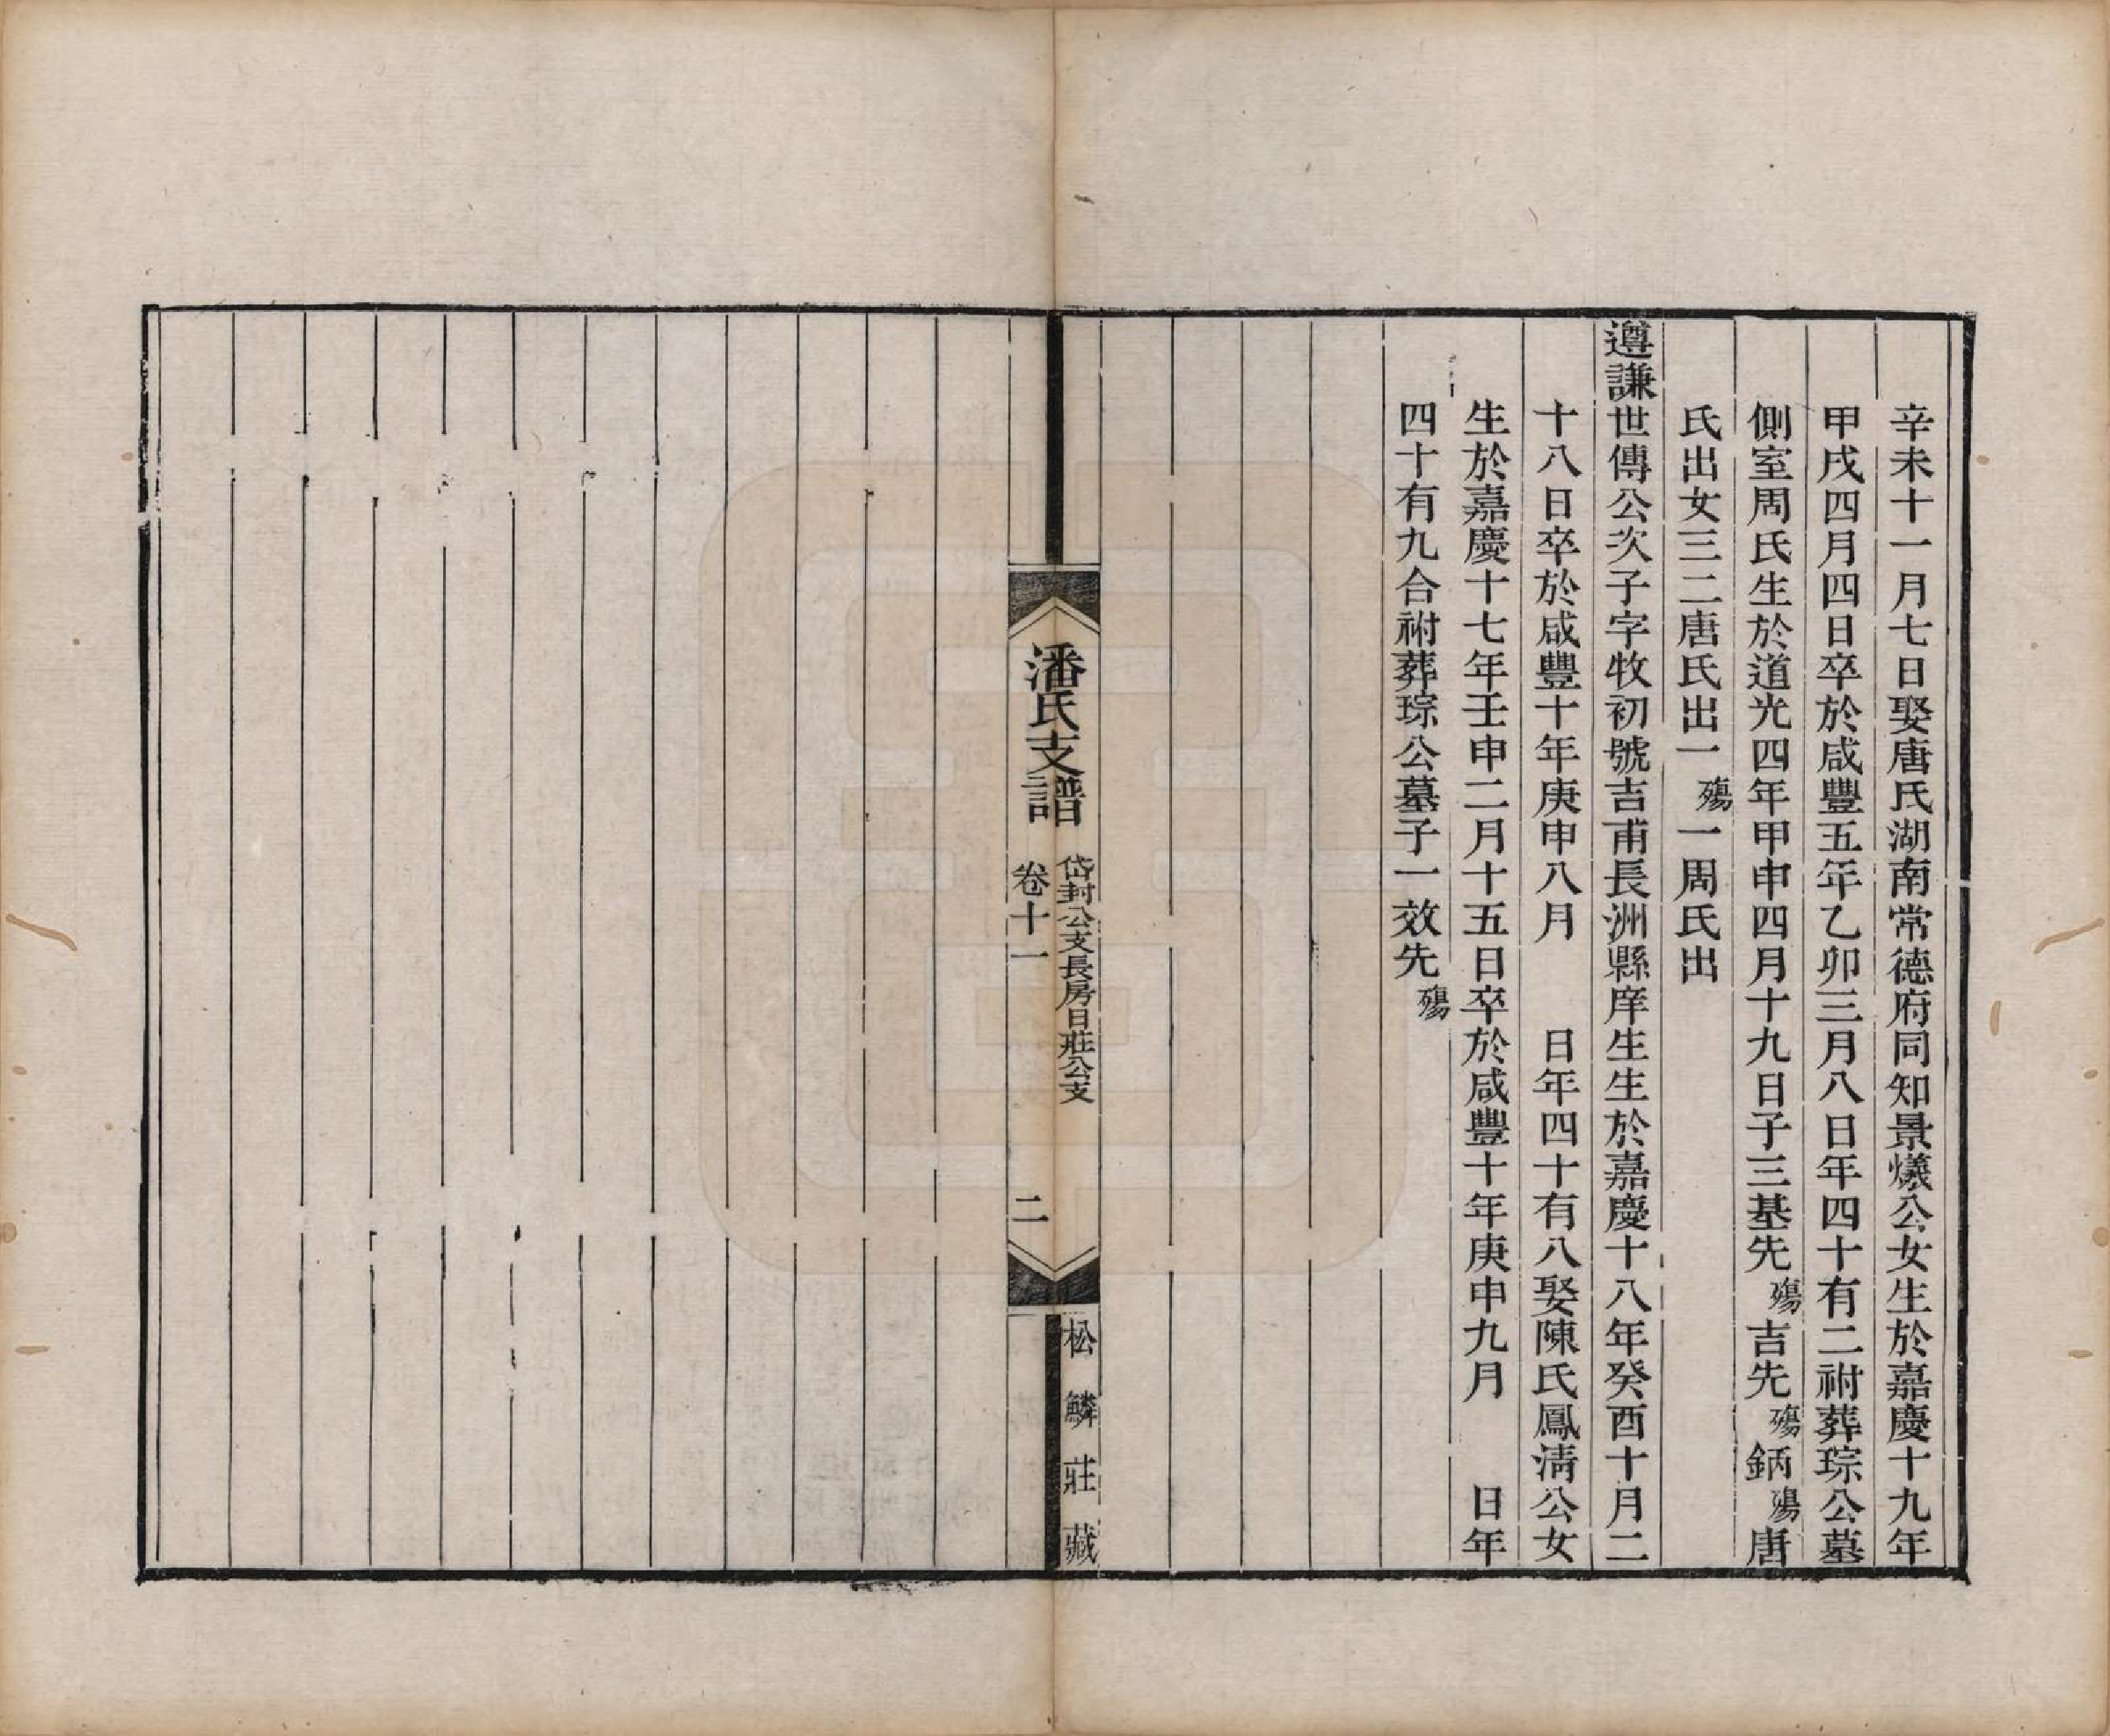 辛未十一月七日娶唐氏湖南常德府同知景爔公女生於嘉慶十九年
甲戌四月四日卒於咸豐五年乙卯三月八日年四十有二祔葬琮公墓
側室周氏生於道光四年甲申四月十九日子三基先殤吉先殤鈵殤唐
氏出女三二唐氏出一殤一周氏出
遵謙世傳公次子字牧初號吉甫長洲縣庠生生於嘉慶十八年癸酉十月二
十八日卒於咸豐十年庚申八月　日年四十有八娶陳氏鳳清公女
生於嘉慶十七年壬申二月十五日卒於咸豐十年庚申九月　日年
四十有九合祔葬琮公墓子一效先殤
潘氏支譜
岱封公支長房日莊公支
卷十一
二
松鱗莊藏